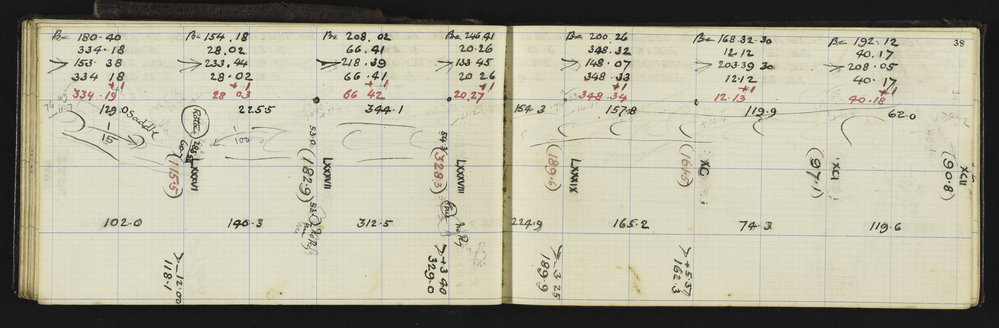 B = 180.40
334.18
153 38
334 18
+1
334.19
B = 154.18
28.02
233.44
28.02
+1
28 03
B = 208.02
66.41
218.39
66.41
+1
66 42
B = 246.41
20.26
133.45
20 26
+1
20.27
B = 200.26
348.32
148.07
348.33
+1
348.34
B = 168.32.30
12.12
203 39 30
12.12
+1
12.13
B = 192.12
40.17
208.05
40.17
+1
40.18
38
129.0
Saddle
15
225.5
344.1
154.3
157.8
119.9
62.0
(115.5)
LXXXVI
53.0
(182.9)
LXXXVII
(328.3)
LXXXVIII
(189.6)
LXXXIX
(164.5)
XC
(97.1)
XCI
(90.8)
XCII
102.0
140.3
312.5
224.9
165.2
74.3
119.6
-12.00
118.1
+3.40
329.0
-3.25
189.9
+5.37
162.3